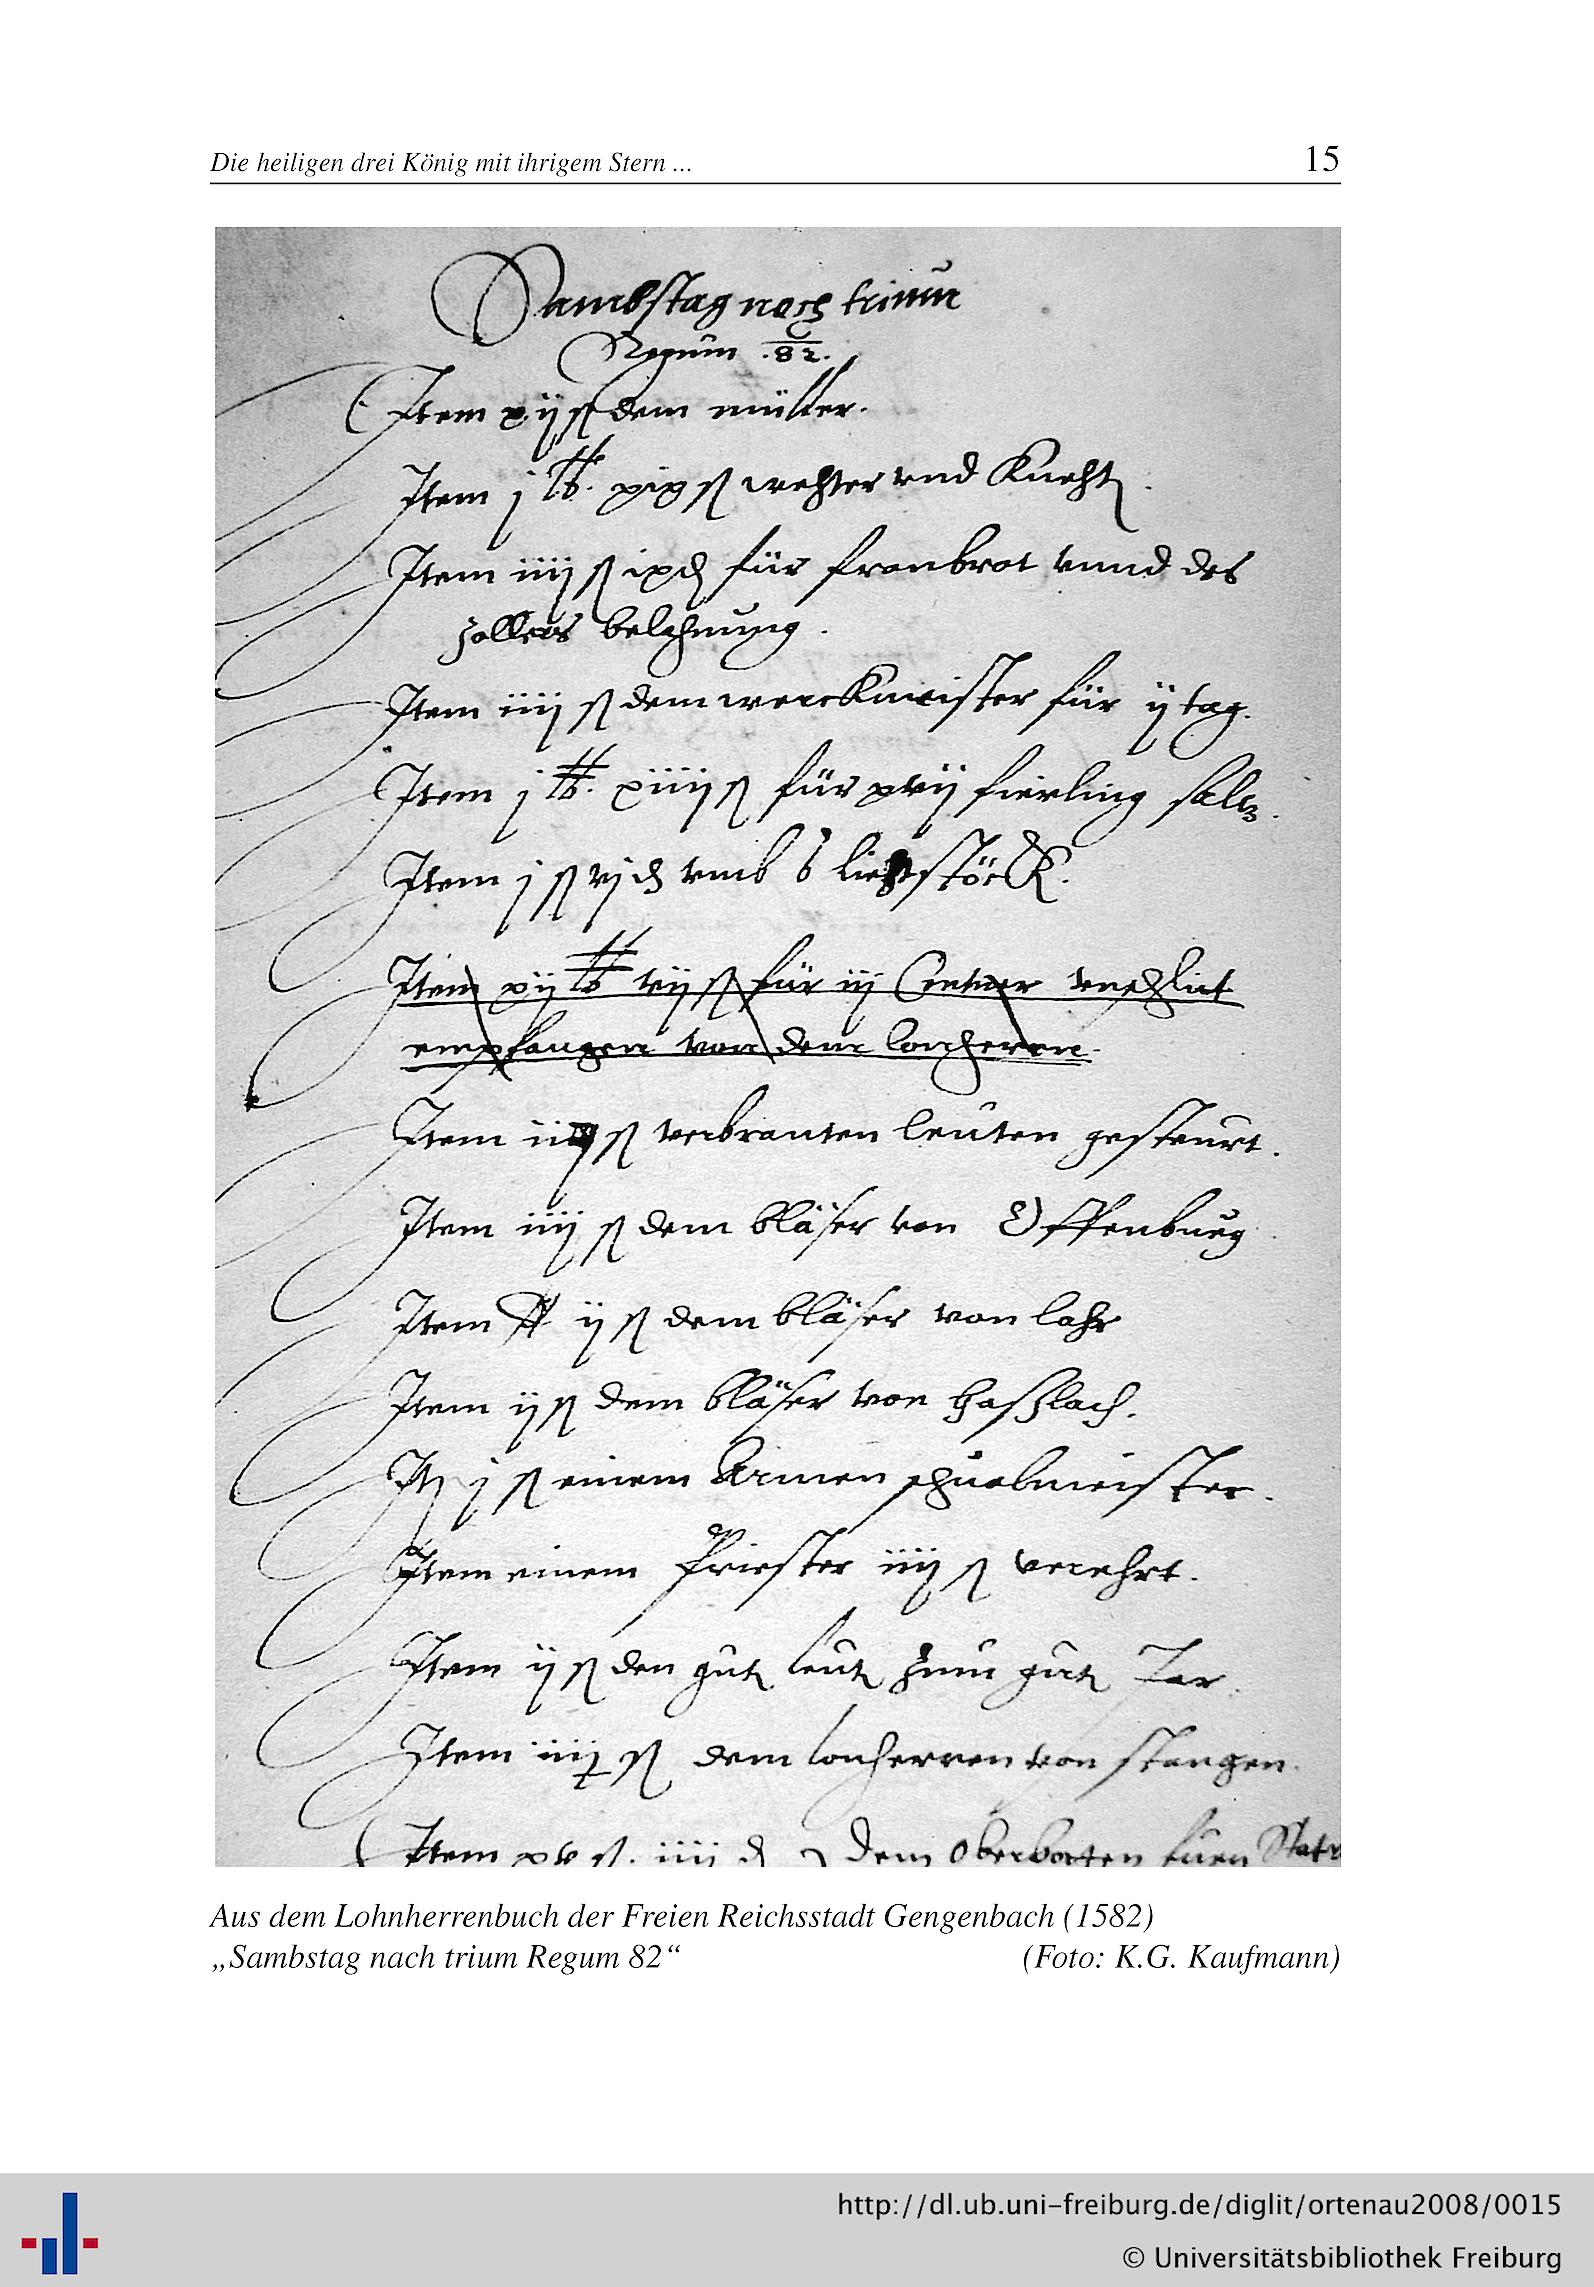 Die heiligen drei König mit ihrigem Stern ...
15
Sambstag nach trium
Regum .82.
Item xij ß dem müller.
Item j lb. xix ß wechter vnd Knecht
Item iiij ß ix d für fronbrot vnnd des
zollers belohnung.
Item iiij ß dem werckmeister für ij tag.
Item j lb. xiiij ß für xvij fierling saltz.
Item j ß vj d vmb liechtstöck.
Item xij lb vij ß für iij Centner
empfangen von dem lonherrn
Item ß verbranten leuten gesteurt.
Item iiij ß dem bläser von Offenburg
Item ij ß dem bläser von lahr
Item ij ß dem bläser von Haßlach.
It j ß einem Armen schuolmeister.
Item einem Priester iiij ß verehrt.
Item ij ß den gut leut zum gut Jar.
Item ß dem lonherren von stangen.
Item xv ß. iiij d dem Oberbotten
Aus dem Lohnherrenbuch der Freien Reichsstadt Gengenbach (1582)
„Sambstag nach trium Regum 82“ (Foto: K.G. Kaufmann)
http://dl.ub.uni-freiburg.de/diglit/ortenau2008/0015
© Universitätsbibliothek Freiburg